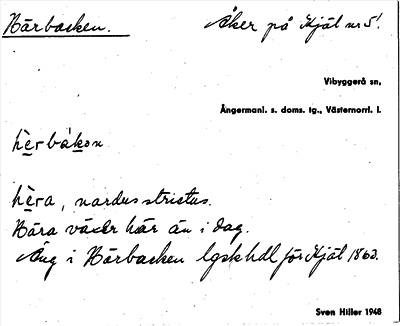 Härbacken. Åker på Hjäl nr 5!
Vibyggerå sn,
Ångermanl. s. doms. tg., Västernorrl. l.
hèrbákon
hèra, nardus strictus.
Hära växer här än i dag.
Äng i Härbacken lgskhdl för Hjäl 1860.
Sven Hiller 1948